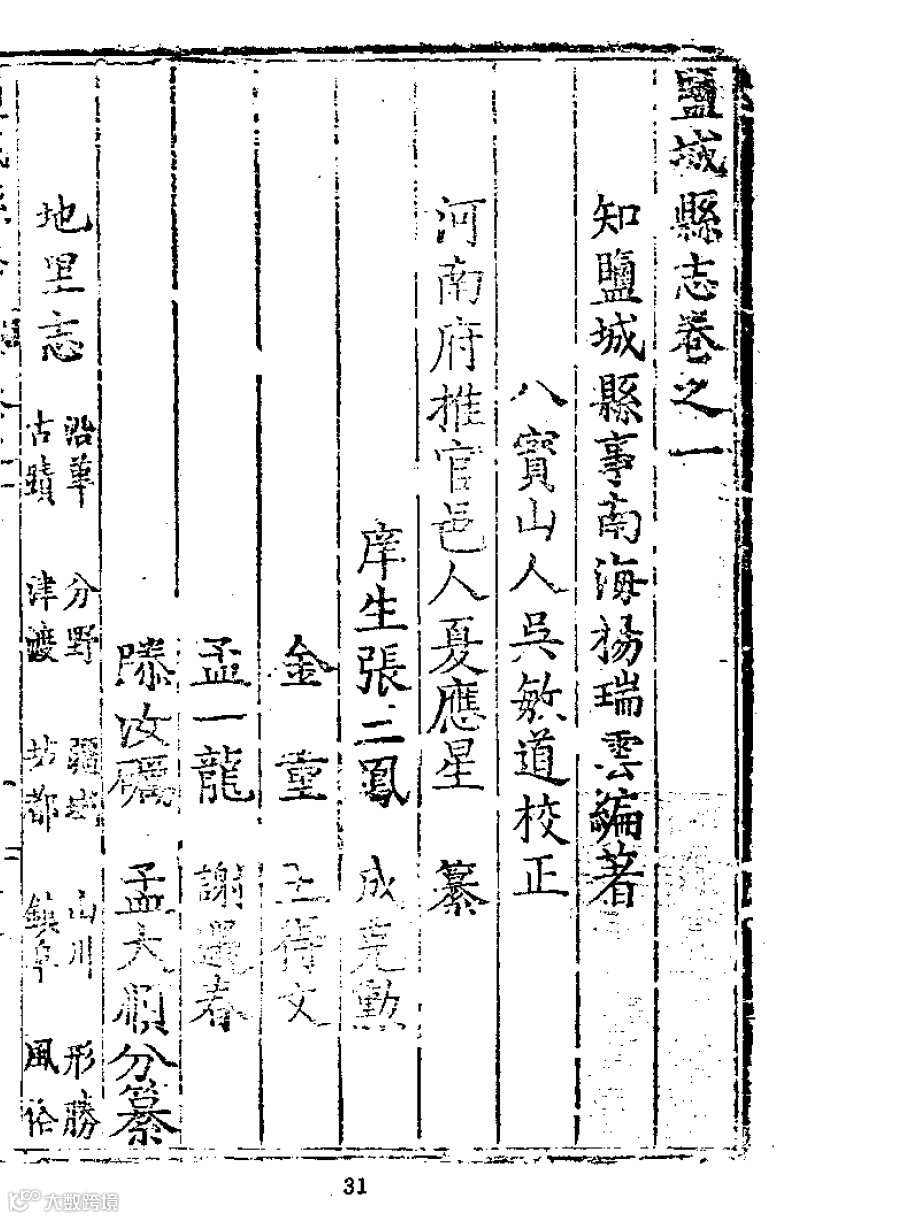 鹽城縣志卷之一
知鹽城縣事南海楊瑞雲編著
八寶山人吳敏道校正
河南府推官邑人夏應星 纂
庠生張二鳳 成克勳
金 董 王得文
孟一龍 謝選春
滕汝礪 孟大順分纂
地里志
沿革 分野 疆域 山川 形勝
古蹟 津渡 坊都 鎮阜 風俗
31
大数跨境